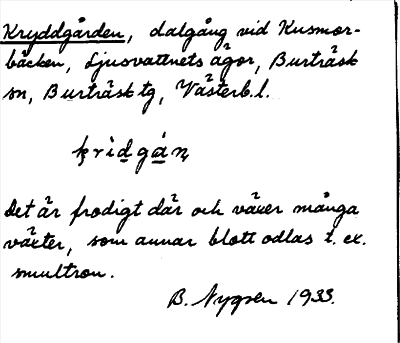 Kryddgården, dalgång vid Kusmor-
bäcken, Ljusvattnets ägor, Burträsk
sn, Burträsk tg, Västerb. l.
kridgán
Det är frodigt där och växer många
växter, som annar blott odlas t. ex.
smultron.
B. Nygren 1933.